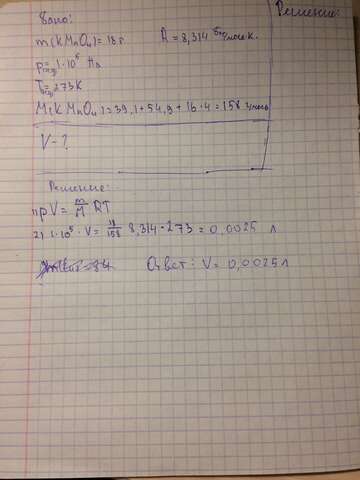 Дано:
Решение:
m(KMnO₄)=18 г. R=8,314 Дж/моль·К.
p=1·10⁵ Па
T=273 К
M(KMnO₄)=39,1+54,9+16·4=158 г/моль
V-?
Решение:
1) pV = m/M RT
2) 1·10⁵·V = 18/158 8,314·273 = 0,0025 л
Ответ: V = 0,0025 л